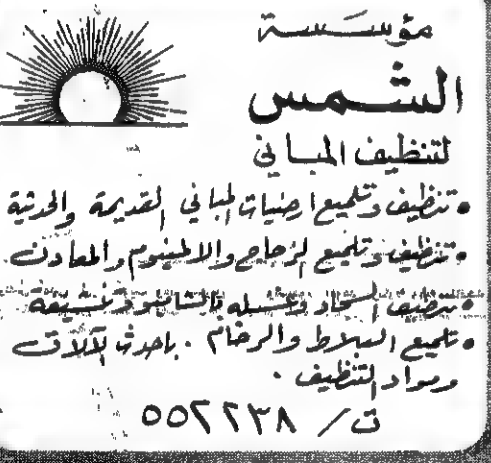 مؤسسة
الشمس
لتنظيف المباني
• تنظيف وتلميع ارضيات المباني القديمة والحديثة
• تنظيف وتلميع الزجاج والالمنيوم والمعادن.
• تنظيف السجاد وغسيله بالشامبو وتنشيفه
• تلميع البلاط والرخام. باحدث الآلات
ومواد التنظيف.
ت/ ٥٥٢٢٣٨